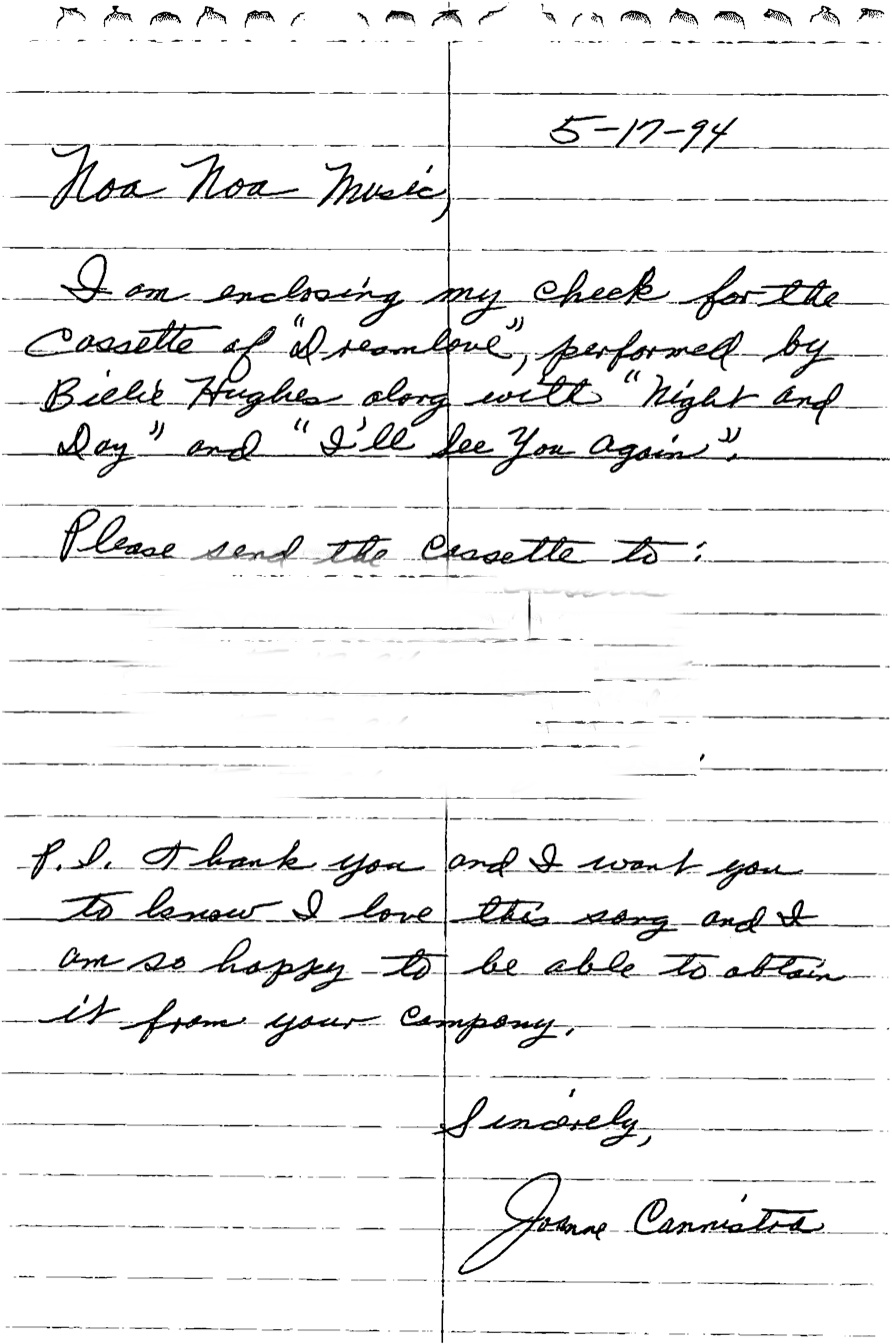 5-17-94
Noa Noa Music,
I am enclosing my check for the
Cassette of "Dreamlove", performed by
Billie Hughes along with "Night and
Day" and "I'll See You Again".
Please send the cassette to:
P.S. Thank you and I want you
to know I love this song and I
am so happy to be able to obtain
it from your company.
Sincerely,
Joanne Cannistra